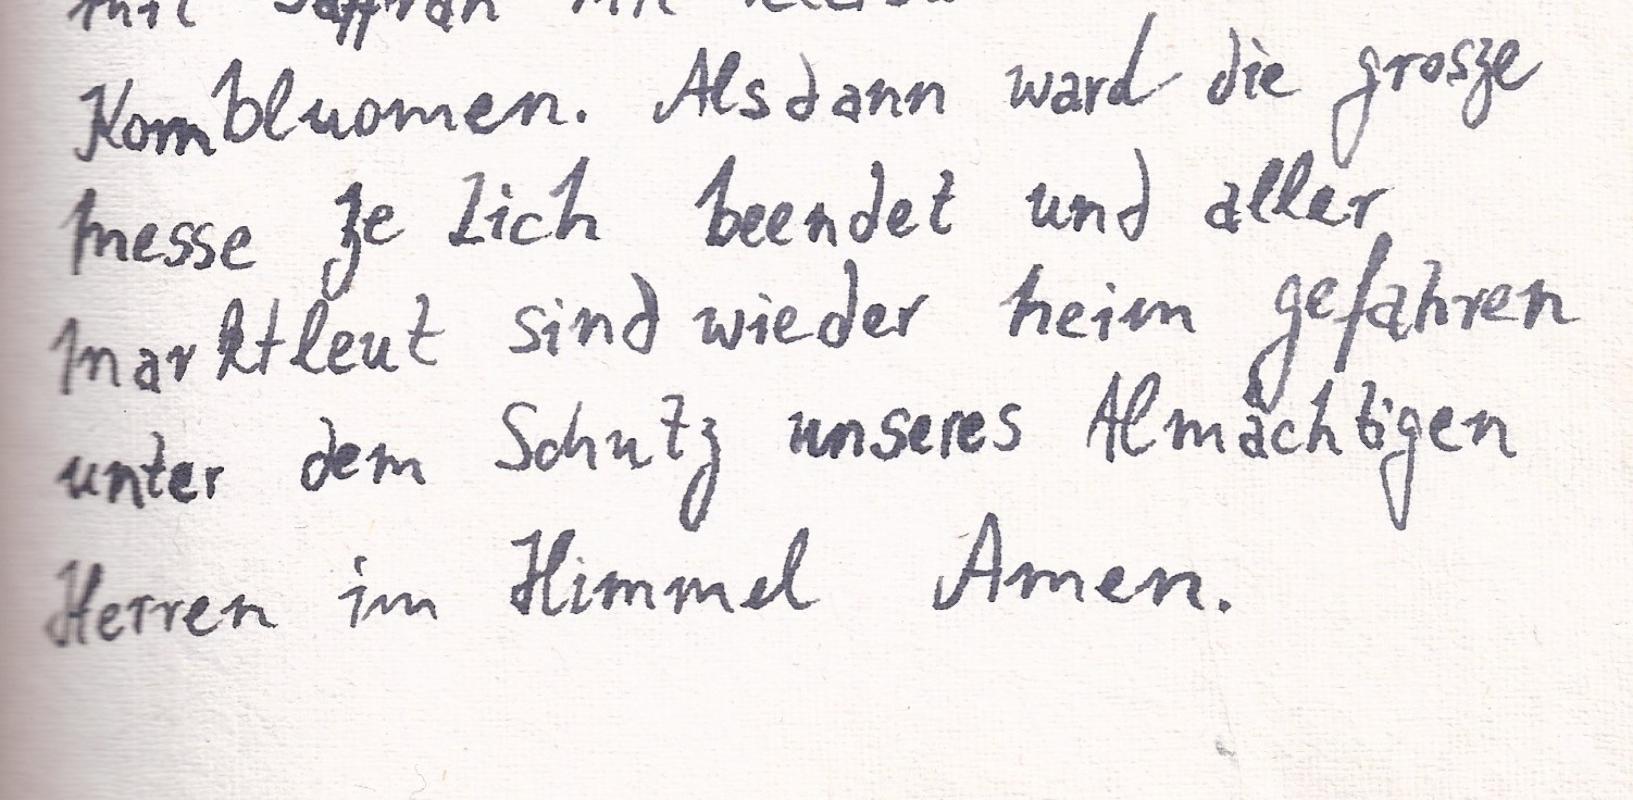 mit Saffran
Kornbluomen. Alsdann ward die grosze
messe ze Lich beendet und aller
marktleut sind wieder heim gefahren
unter dem Schutz unseres Almächtigen
Herren im Himmel Amen.